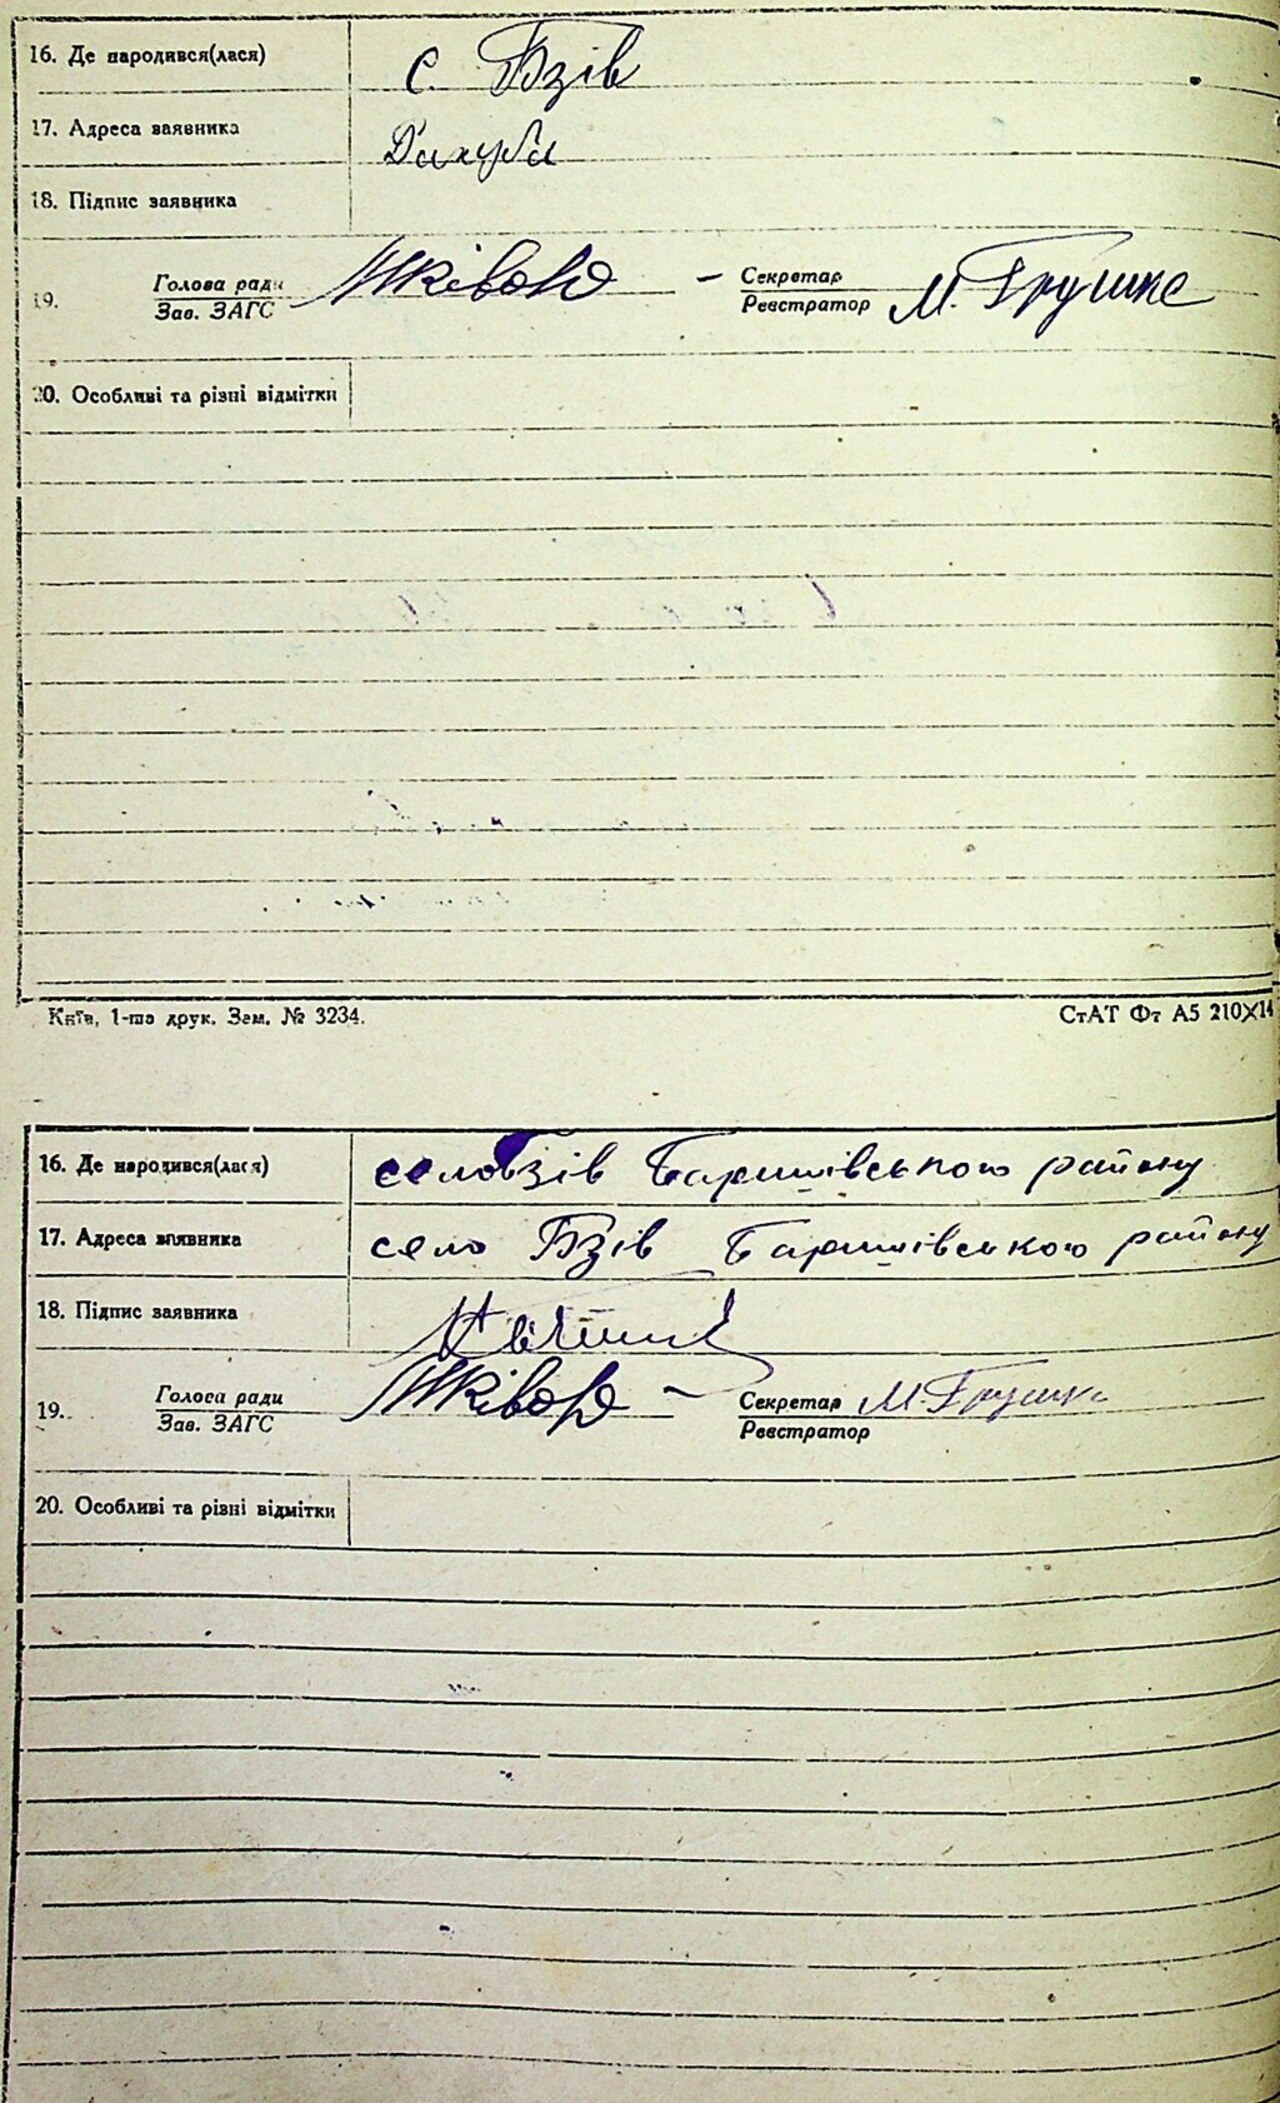 16. Де народився(лася) с. Бзів
17. Адреса заявника
18. Підпис заявника
Голова ради Секретар
19. М. Грушке
Зав. ЗАГС Реєстратор
20. Особливі та різні відмітки
Київ, 1-ша друк. Зам. № 3234. СтАТ Фт А5 210X14
16. Де народився(лася) село Бзів Баришівського району
17. Адреса заявника село Бзів Баришівського району
18. Підпис заявника
Голова ради Секретар М. Грушке
19.
Зав. ЗАГС Реєстратор
20. Особливі та різні відмітки